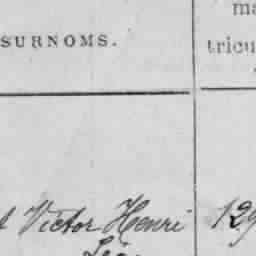 ma
SURNOMS.
tricu
t Victor Henri 129
Léo